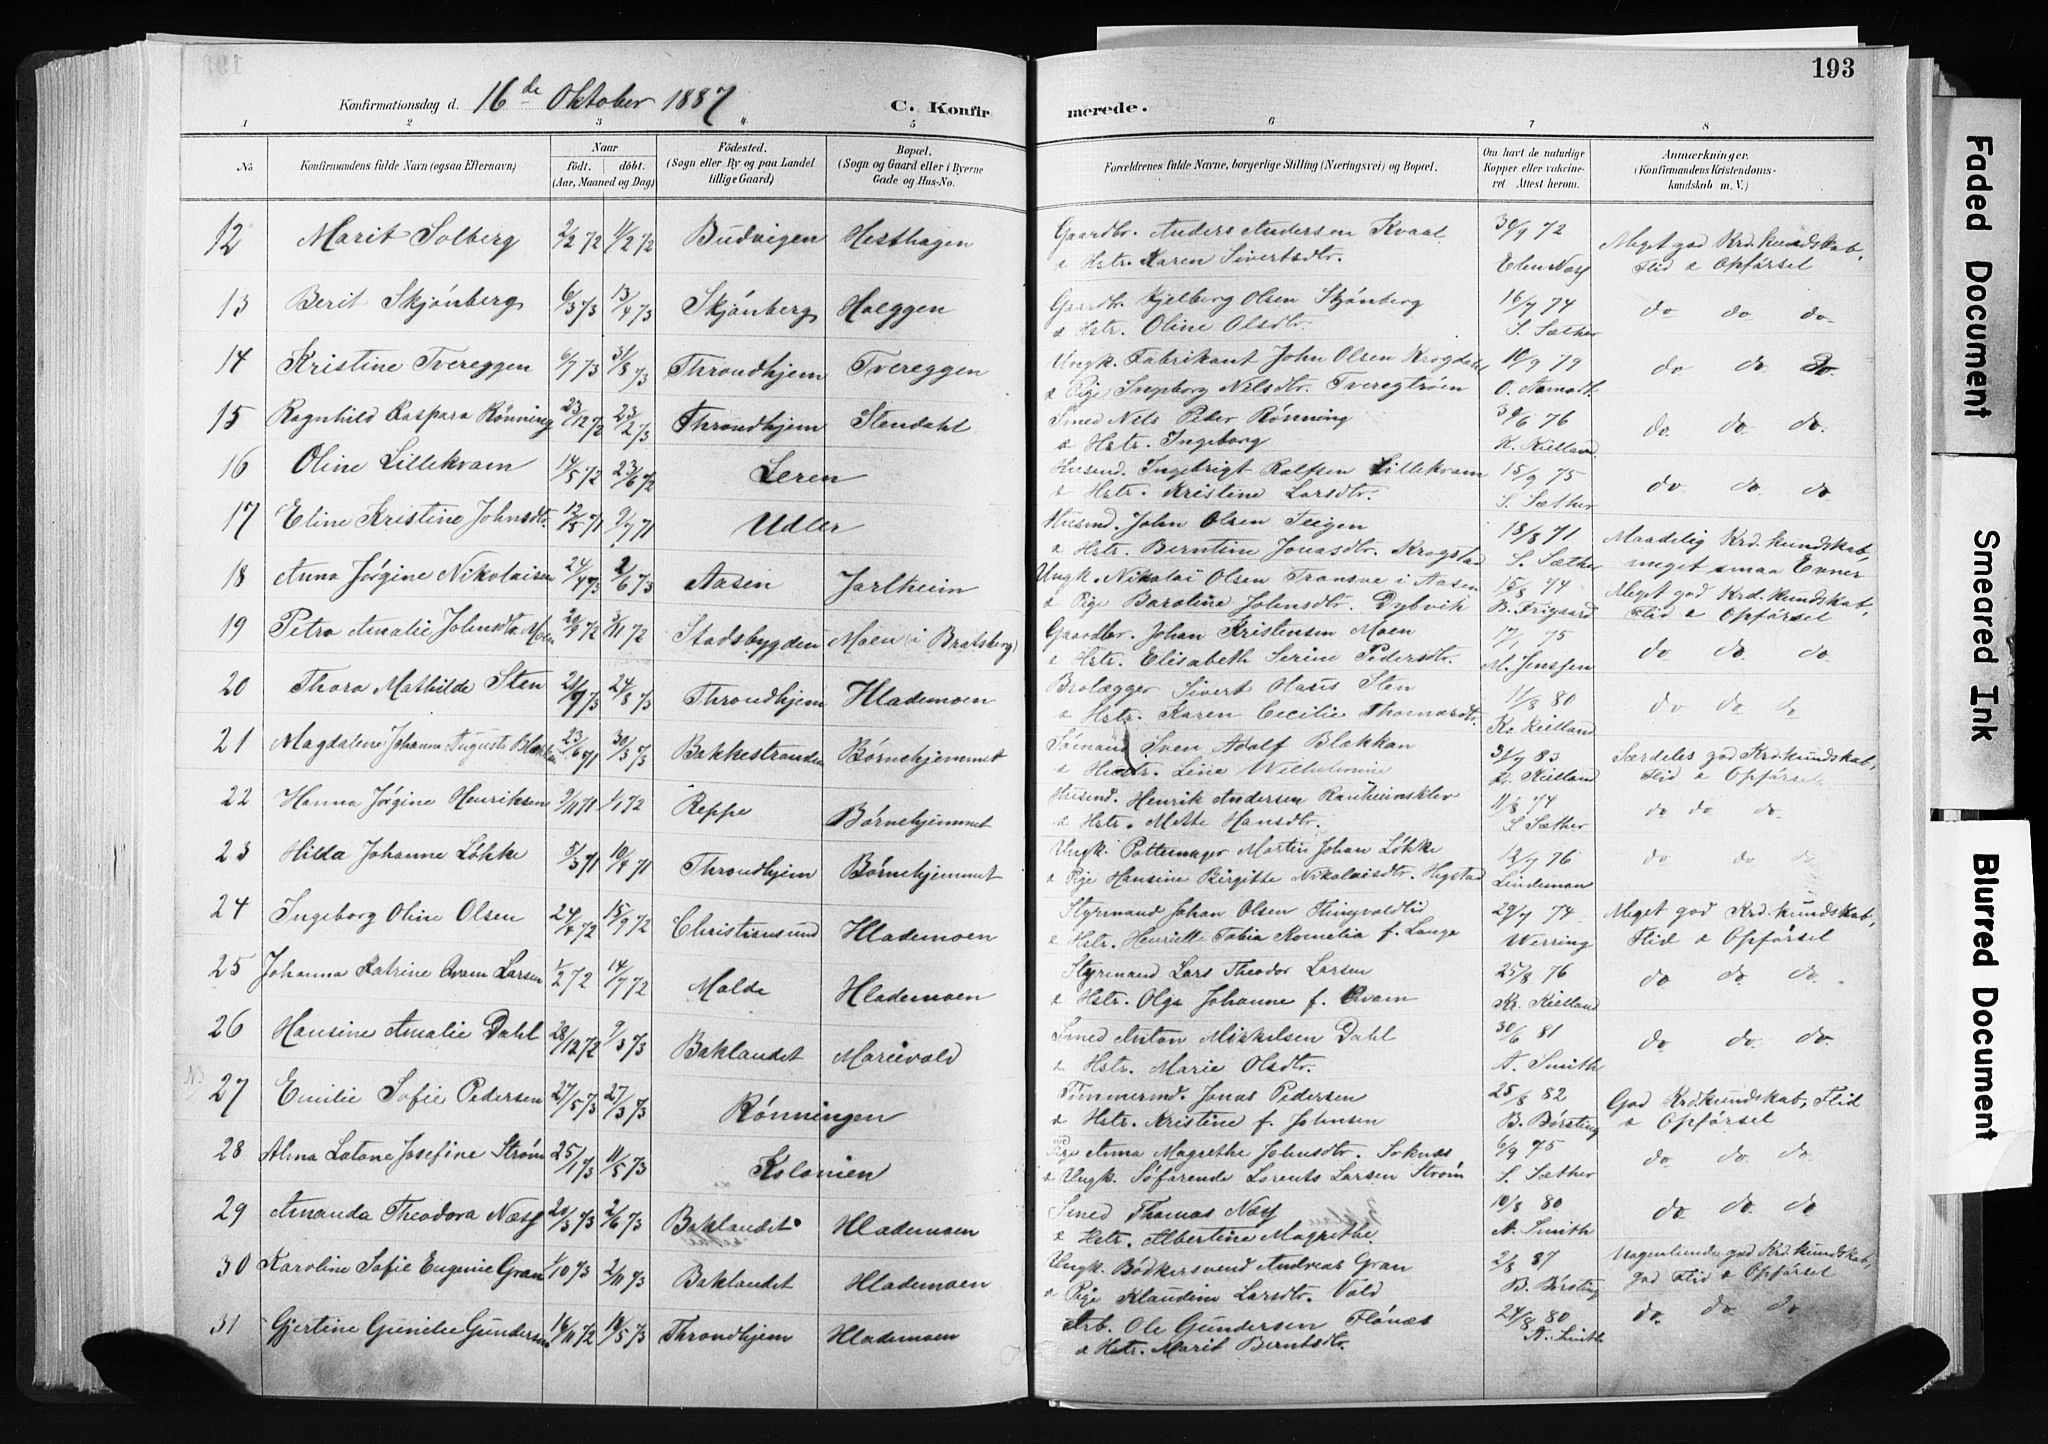 193
Konfirmationsdag d. 16de Oktober 1887 C. Konfirmerede.
1 2 3 4 5 6 7 8
No. Konfirmandens fulde Navn (ogsaa Efternavn) Naar født. døbt. (Aar, Maaned og Dag) Fødested. (Sogn eller By og paa Landet tillige Gaard) Bopæl. (Sogn og Gaard eller i Byerne Gade og Hus-No. Forældrenes fulde Navne, borgerlige Stilling (Næringsvei) og Bopæl. Om havt de naturlige Kopper eller vakcineret. Attest herom. Anmærkninger. (Konfirmandens Kristendomskundskab m. V.)
12 Marit Solberg 2/2 72 11/2 72 Budvigen Hesthagen Gaardbr. Anders Andersen Kvaal 30/9 72 Meget god Krd.kundskab,
& Hstr. Karen Sivertsdtr. Elen Næss Flid & Opførsel
13 Berit Skjønberg 6/3 73 13/4 73 Skjønberg Hoeggen Gaardb. Kjelberg Olsen Skjønberg 16/7 74 do do do
& Hstr. Oline Olsdtr. S. Sæther
14 Kristine Tvereggen 6/7 73 31/8 73 Throndhjem Tvereggen Ungk. Fabrikant John Olsen Krogdahl 10/9 79 do do do.
& Pige Ingeborg Nilsdtr. Tveregtrøen O. Aamoth.
15 Ragnhild Kaspara Rønning 23/12 72 23/2 73 Throndhjem Stendahl Smed Nels Peder Rønning 30/6 76 do. do. do.
& Hstr. Ingeborg K. Kielland
16 Oline Lillekvam 14/5 72 23/6 72 Leren Husmd. Ingebrigt Rolfsen Lillekvam 15/9 75 do. do. do
& Hstr. Kristine Larsdtr. S. Sæther
17 Eline Kristine Johnsdtr. 12/5 71 9/7 71 Udler Husmd. John Olsen Teigen 18/8 71 Maadelig Krd.kundskab,
& Hstr. Berntine Jonasdtr. Krogstad S. Sæther meget smaa Evner
18 Anna Jørgine Nikolaisen 24/4 73 2/6 73 Aasen Jarlheim Ungk. Nikolai Olsen Transve i Aasen 15/8 74 Meget god Krd.kundskab,
& Pige Baroline Johnsdtr. Dybvik B. Frigaard Flid & Opførsel
19 Petra Amalie Johnsdtr. Moen 20/9 72 3/11 72 Stadsbygden Moen (i Bratsberg) Gaardbr. Johan Kristensen Moen 17/7 75 do do. do
& Hstr. Elisabeth Serine Pedersdtr. M. Jenssen
20 Thora Mathilde Sten 21/7 73 24/8 73 Throndhjem Hlademoen Brolægger Sivert Olaus Sten 11/8 80 do do do
& Hstr. Karen Cecilie Thomasdtr. K. Kielland
21 Magdalene Johanna Augusta Blækkan 23/6 71 30/3 73 Bakkestranden Børnehjemmet Sømand Sven Adolf Blækkan 31/7 83 Særdeles god Krd.kundskab,
& Hustr. Line Wilhelmine K. Kielland Flid & Opførsel
22 Hanna Jørgine Henriksen 9/11 71 1/1 72 Reppe Børnehjemmet Husmd. Henrik Andersen Ranheimsklev 11/8 74 do do do.
& Hstr. Mette Hansdtr. S. Sæther
23 Hilda Johanne Løkke 5/3 71 10/4 71 Throndhjem Børnehjemmet Ungk. Pottemager Martin Johan Løkke 12/7 76 do do do
& Pige Hansine Birgitte Nikolaisdtr. Hegstad Lindeman
24 Ingeborg Oline Olsen 24/4 72 15/9 72 Christiansund Hlademoen Styrmand Johan Olsen Thingvoldlid 29/7 74 Meget god Krd.kundskab,
& Hstr. Henriette Tobia Kornelia f. Lange Werring Flid & Opførsel
25 Johanna Katrine Qvam Larsen 1/2 72 14/7 72 Molde Hlademoen Styrmand Lars Theodor Larsen 25/8 76 do do. do.
& Hstr. Olga Johanne f. Qvam K. Kielland
26 Hansine Amalie Dahl 28/12 72 9/3 73 Baklandet Marievold Smed Anton Mikkelsen Dahl 30/6 81 do do. do.
& Hstr. Marie Olsdtr. A. Smith
27 Emilie Sofie Pedersen 27/5 73 27/3 73 Rønningen Tømmermd. Jonas Pedersen 25/8 82 God Krd.kundskab, Flid
& Hstr. Kristine f. Johnsen B. Børsting & Opførsel
28 Alma Latone Josefine Strøm 25/1 73 11/5 73 Kolonien Pige Anna Magrethe Johnsdtr. Soknes 6/9 75 do do. do
& Ungk. Søfarende Lorents Larsen Strøm S. Sæther
29 Amanda Theodora Næss 20/3 73 2/6 73 Baklandet Hlademoen Smed Thomas Næss 10/8 80 do do. do
& Hstr. Albertine Magrethe A. Smith
30 Karoline Sofie Eugenie Gran 1/10 73 2/11 73 Baklandet Hlademoen Ungk. Bødkersvend Andreas Gran 2/8 87 Nogenlunde god Krd.kundskab,
& Pige Klaudine Larsdtr. Vold B. Børsting god Flid & Opførsel
31 Gjertine Gunilie Gundersen 16/11 72 18/5 73 Throndhjem Hlademoen Arb. Ole Gundersen Flønæs 24/8 80 do. do do
& Hstr. Marit Berntsdtr. A. Smith
Faded Document
Smeared Ink
Blurred Document